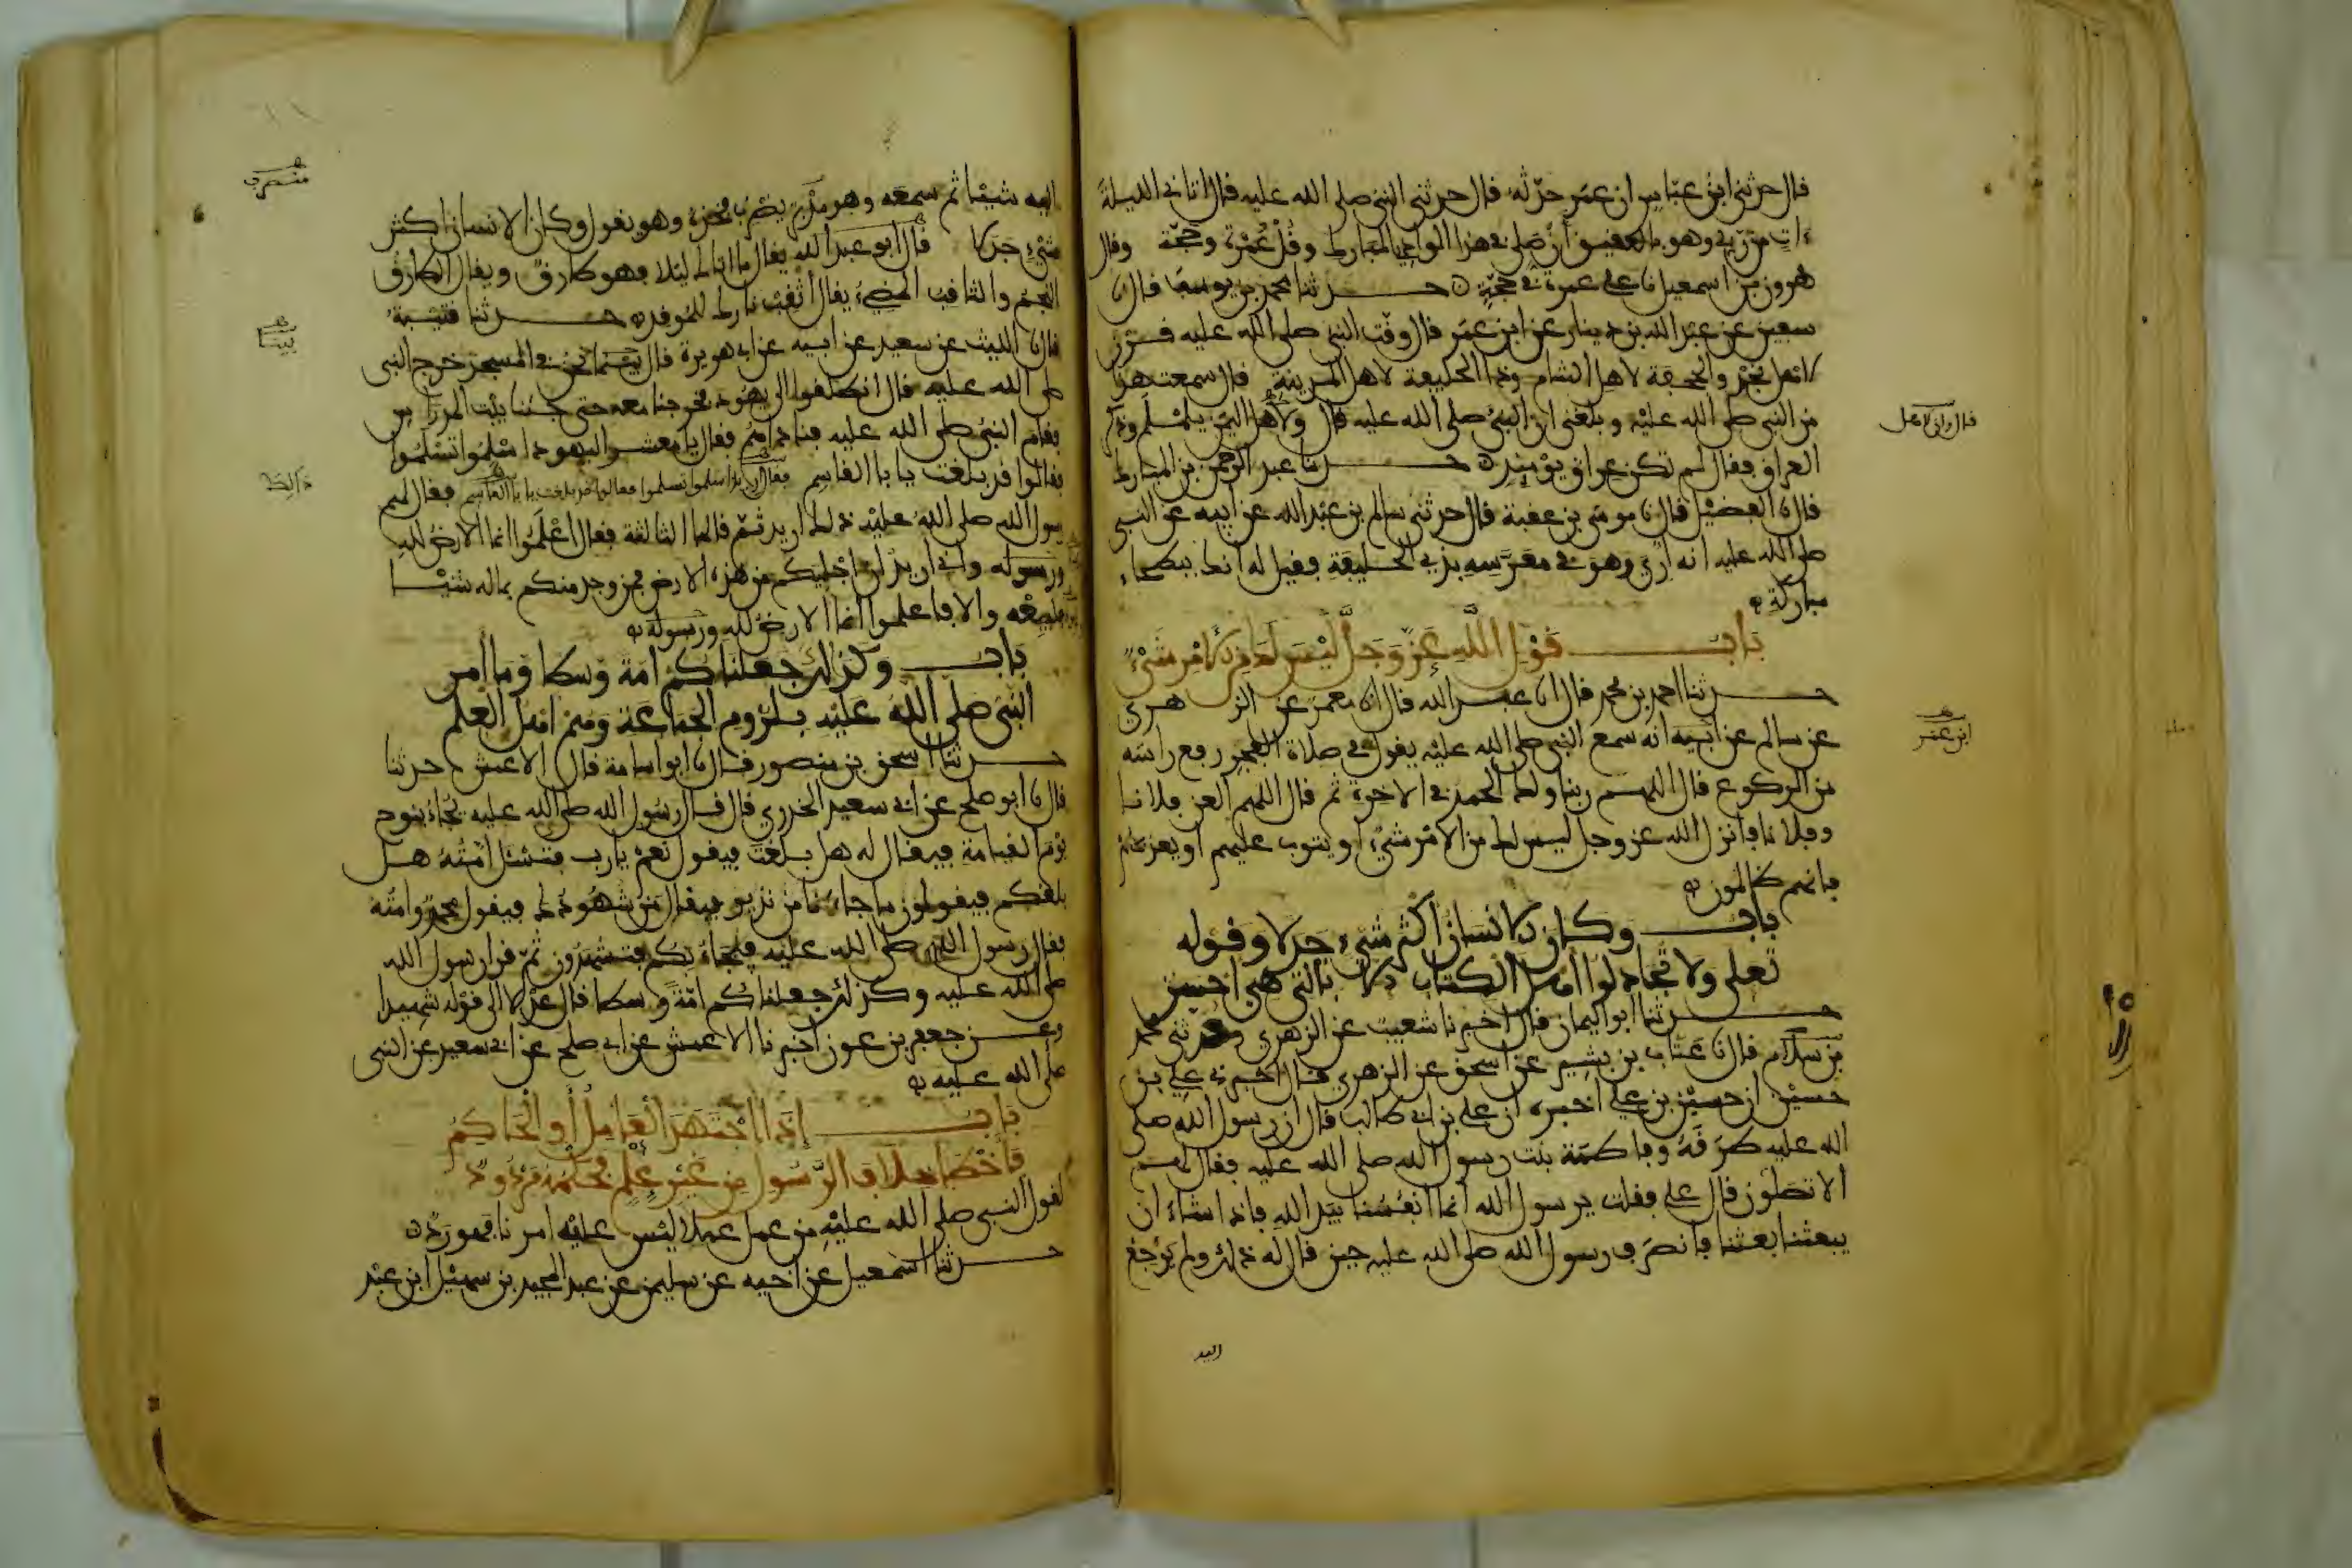 قال حدثني ابن عباس ان عمر حدثه قال حدثني النبي صلى الله عليه قال اتاني الليلة
ءات من ربي وهو بالعقيق أن صل في هذا الوادي المبارك وقل عمرة وحجة وقال
هرون بن اسمعيل نا علي عمرة في حجة حدثنا محمد بن يوسف قال نا
سفين عن عبد الله بن دينار عن ابن عمر قال وقت النبي صلى الله عليه قرن
لاهل نجد والجحفة لاهل الشام وذا الحليفة لاهل المدينة قال سمعت هذا
من النبي صلى الله عليه وبلغني ان النبي صلى الله عليه قال ولاهل اليمن يلملم وذكر
قال وان لاهل
العراق فقال لم تكن عراق يومئذ حدثنا عبد الرحمن بن المبارك
قال نا الفضيل قال نا موسى بن عقبة قال حدثني سالم بن عبد الله عن ابيه عن النبي
صلى الله عليه انه أري وهو في معرسه بذي الحليفة فقيل له انك ببطحاء
مباركة
باب قول الله عز وجل ليس لك من الامر شيء
حدثنا احمد بن محمد قال انا عبد الله قال انا معمر عن الزهري
عن سالم عن ابيه انه سمع النبي صلى الله عليه يقول في صلاة الفجر رفع راسه
ابن عمر
من الركوع قال اللهم ربنا ولك الحمد في الاخرة ثم قال اللهم العن فلانا
وفلانا فانزل الله عز وجل ليس لك من الامر شيء او يتوب عليهم او يعذبهم
فانهم ظالمون
باب وكان الانسان أكثر شيء جدلا وقوله
تعلى ولا تجادلوا أهل الكتاب الا بالتي هي احسن
حدثنا ابو اليمان قال اخبرنا شعيب عن الزهري وحدثني محمد
بن سلام قال نا عتاب بن بشير عن اسحق عن الزهري قال اخبرني علي بن
حسين ان حسين بن علي اخبره ان علي بن ابي طالب قال ان رسول الله صلى
الله عليه طرقه وفاطمة بنت رسول الله صلى الله عليه فقال لهم
الا تصلون قال علي فقلت يرسول الله انما انفسنا بيد الله فاذا شاء ان
يبعثنا بعثنا فانصرف رسول الله صلى الله عليه حين قال له ذلك ولم يرجع
اليه
اليه شيئا ثم سمعه وهو مدبر يضرب فخذه وهو يقول وكان الانسان اكثر
منصرف
شيء جدلا قال ابو عبد الله يقال ما اتاك ليلا فهو طارق ويقال الطارق
النجم والثاقب المضيء يقال أثقب نارك للموقد حدثنا قتيبة
قال نا الليث عن سعيد عن ابيه عن ابي هريرة قال بينما نحن في المسجد خرج النبي
بينا
صلى الله عليه قال انطلقوا الى يهود فخرجنا معه حتى جئنا بيت المدراس
فقام النبي صلى الله عليه فناداهم فقال يا معشر اليهود اسلموا تسلموا
فقالوا قد بلغت يا با القاسم فقال اسلموا تسلموا فقالوا قد بلغت يا با القاسم فقال لهم
ذلك
رسول الله صلى الله عليه ذلك اريد ثم قالها الثالثة فقال اعلموا انما الارض لله
ورسوله واني اريد ان اجليكم من هذه الارض فمن وجد منكم بماله شيئا
فليبعه والا فاعلموا انما الارض لله ورسوله
باب وكذلك جعلناكم امة وسطا وما أمر
النبي صلى الله عليه بلزوم الجماعة وهم اهل العلم
حدثنا اسحق بن منصور قال نا ابو اسامة قال الاعمش حدثنا
قال نا ابو صلح عن ابي سعيد الخدري قال قال رسول الله صلى الله عليه يجاء بنوح
يوم القيامة فيقال له هل بلغت فيقول نعم يارب فتسئل امته هل
بلغكم فيقولون ما جاءنا من نذير فيقال من شهودك فيقول محمد وامته
فقال رسول الله صلى الله عليه فيجاء بكم فتشهدون ثم قرا رسول الله
صلى الله عليه وكذلك جعلناكم امة وسطا قال عدلا الى قوله شهيدا
وعن جعفر بن عون اخبرنا الاعمش عن ابي صلح عن ابي سعيد عن النبي
صلى الله عليه
باب إذا اجتهد العامل أو الحاكم
فأخطأ خلاف الرسول من غير علم فحكمه مردود
لقول النبي صلى الله عليه من عمل عملا ليس عليه امرنا فهو رد
حدثنا اسمعيل عن اخيه عن سليمن عن عبد المجيد بن سهيل ابن عبد